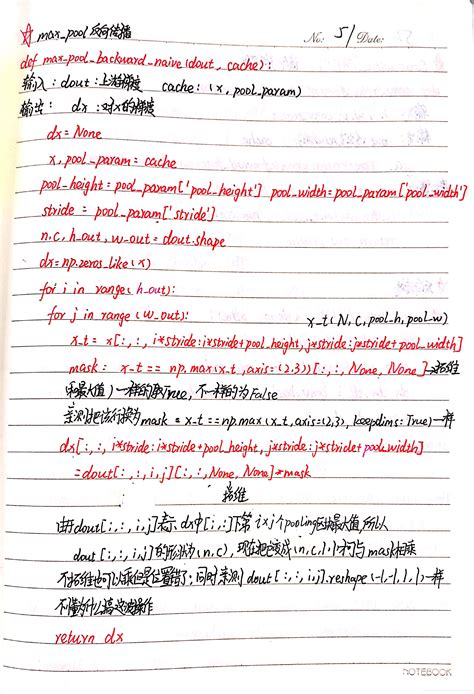 ☆ max_pool 反向传播
No. 51 Date:
def max_pool_backward_naive(dout, cache):
输入：dout：上游梯度 cache：(x, pool_param)
输出： dx：对x的梯度
dx = None
x, pool_param = cache
pool_height = pool_param['pool_height'] pool_width = pool_param['pool_width']
stride = pool_param['stride']
n, c, h_out, w_out = dout.shape
dx = np.zeros_like(x)
for i in range(h_out):
for j in range(w_out): x_t(N, C, pool_h, pool_w)
x_t = x[:,:, i*stride:i*stride+pool_height, j*stride:j*stride+pool_width]
mask = x_t == np.max(x_t, axis=(2,3))[:,:, None, None] → 扩维
最大值）一样的为True，不一样的为False
亲测把该行换为mask = x_t == np.max(x_t, axis=(2,3), keepdims=True)一样
dx[:,:, i*stride:i*stride+pool_height, j*stride:j*stride+pool_width]
= dout[:,:,i,j][:,:,None,None]*mask
扩维
由于dout[:,:,i,j]表示dx中[:,:]下第i×j个pooling的最大值,所以
dout[:,:,i,j]的形状为(n,c)，现在把它变成(n,c,1,1)才可与mask相乘
不扩维也可以乘但是位置错了；同时亲测dout[:,:,i,j].reshape(-1,-1,1,1)一样
不懂为什么操作
return dx
NOTEBOOK